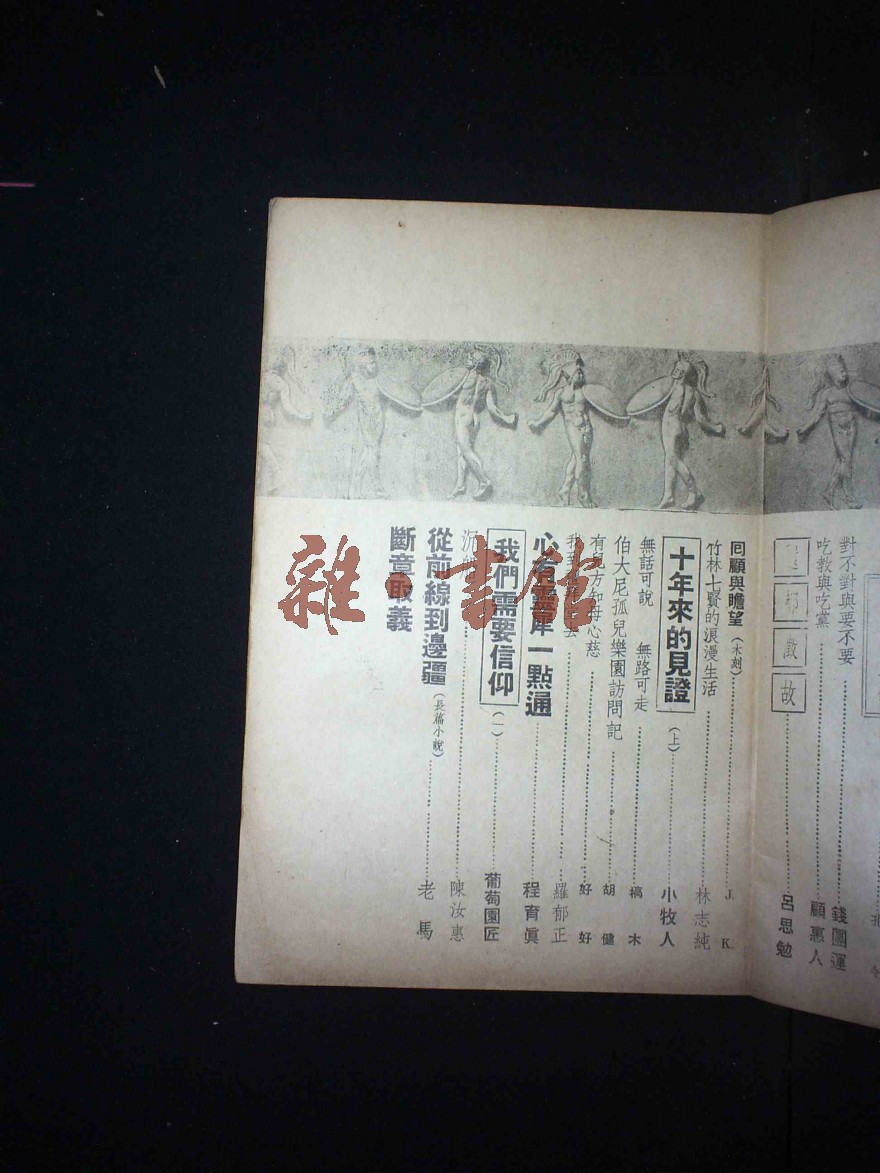 對不對與要不要 錢團運
吃教與吃黨 顧惠人
故 呂思勉
囘顧與瞻望(木刻) J. K.
竹林七賢的浪漫生活 林志純
十年來的見證(上) 小牧人
無話可說 無路可走 槁木
伯大尼孤兒樂園訪問記 胡健
有兒方知母心慈 好好
羅郁正
心有靈犀一點通 程育眞
我們需要信仰(一) 葡萄園匠
陳汝惠
從前線到邊疆(長篇小說) 老馬
斷章取義
雜·書館